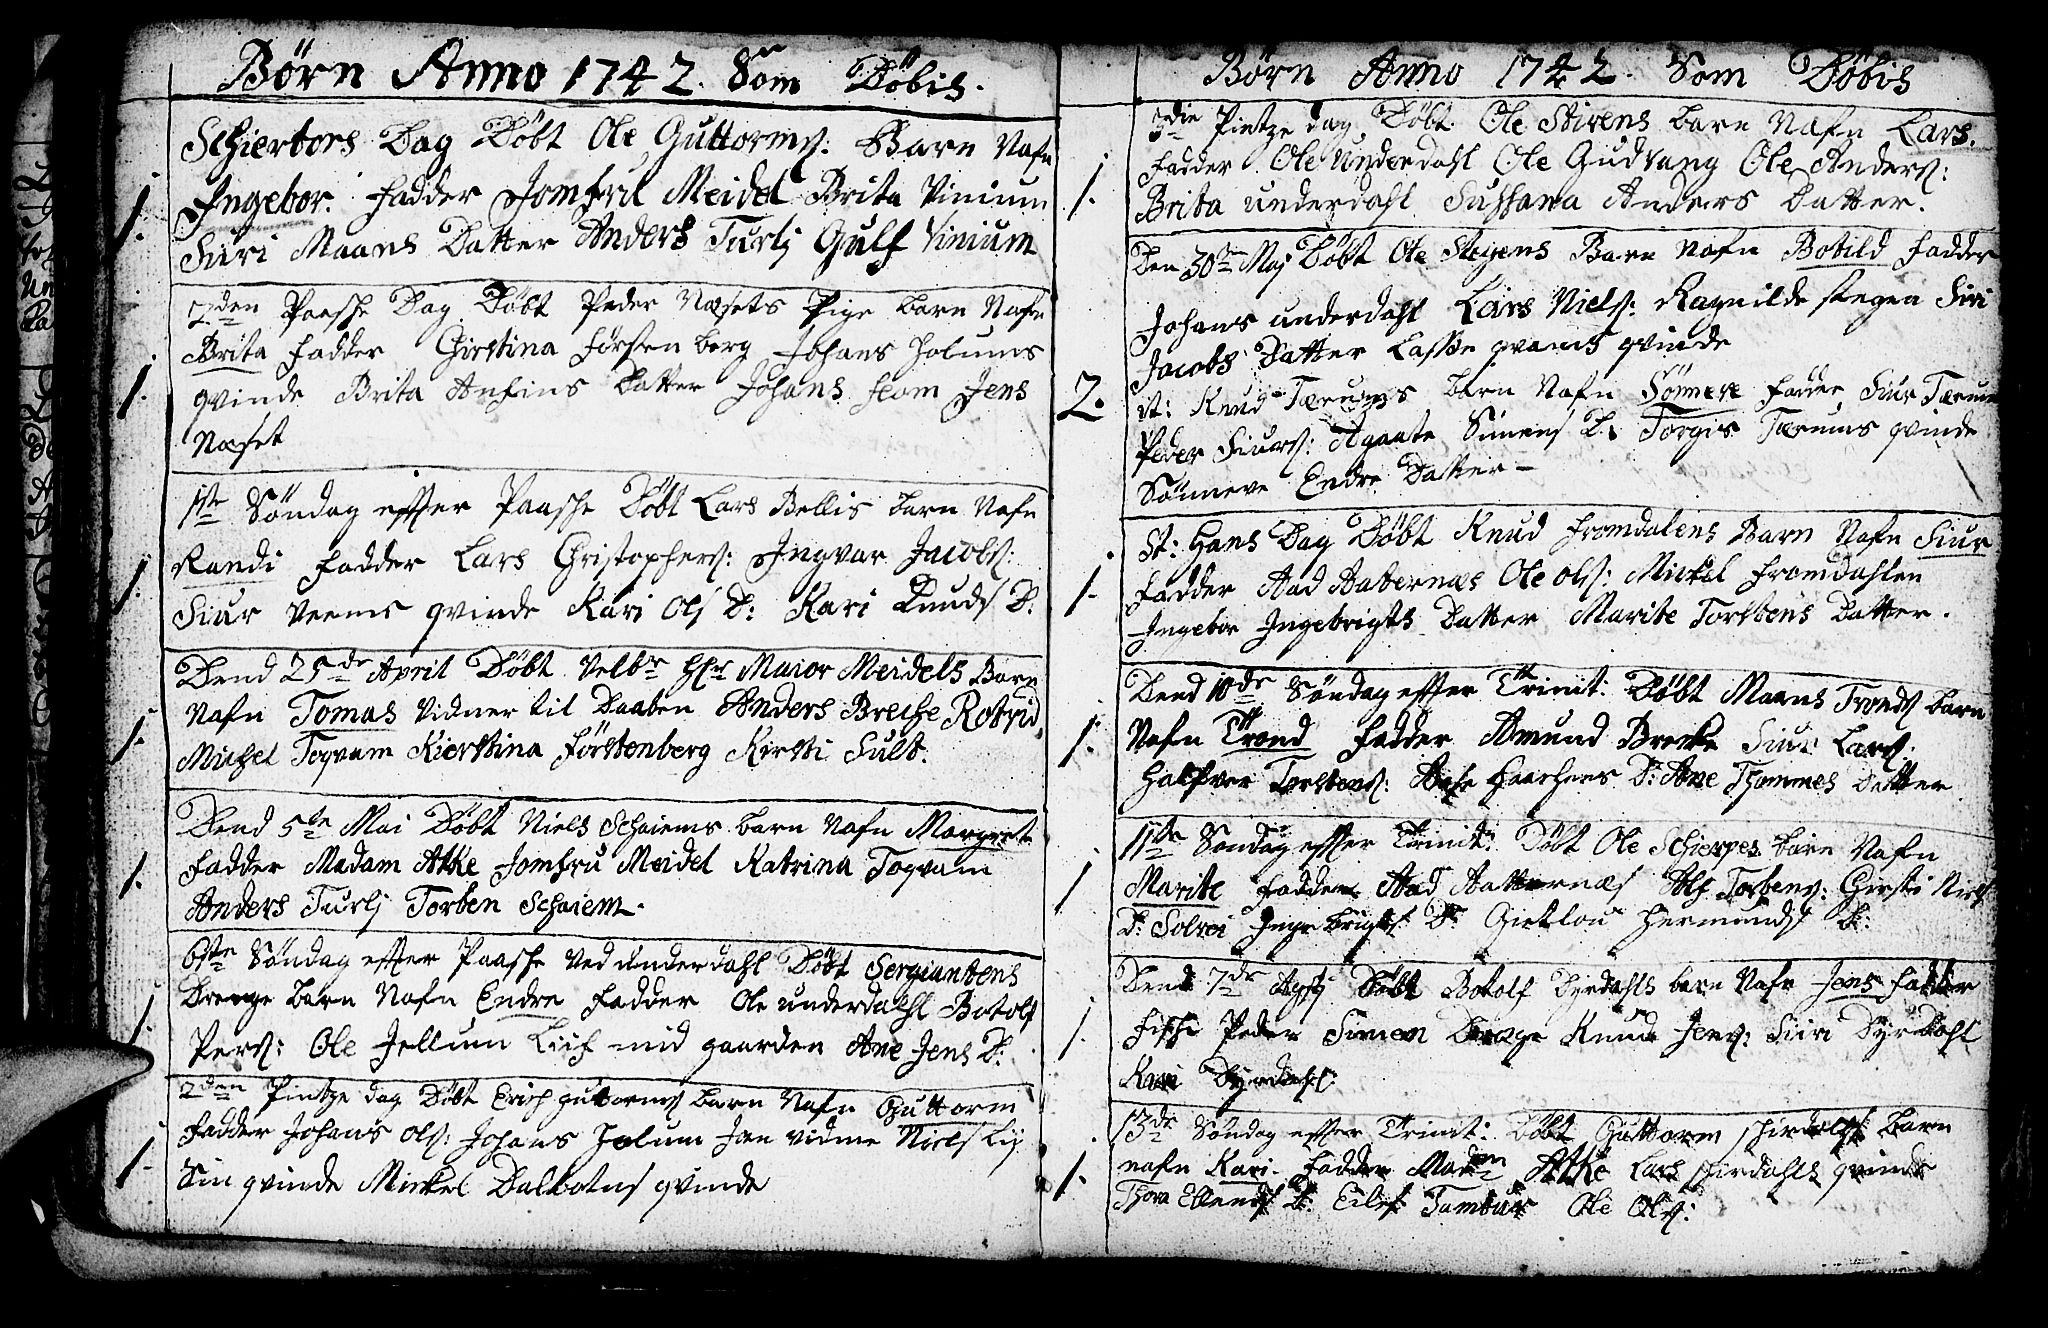 Børn Anno 1742. Som Döbis.
Schiertors Dag Döbt Ole Guttorms: Barn Nafn
1. Ingebor. Fadder Jomfru Meidel Brita Vinium
Siuri Maans Datter Anders Turlj Gulf Vinium
2den Paasche Dag Döbt Peder Næsets Pige barn Nafn
Brita Fadder Chirstina Försten berg Johans Holums
1. qvinde Brita Anfins Datter Johans Hom Jens
Næset
1ste Söndag effter Paasche Döbt Lars Bellis barn Nafn
Randi Fadder Lars Christophers: Ingvar Jacobs:
1. Siur Veems qvinde Kari Ols D: Kari Knuds D:
Dend 25de April Döbt Velbr Hr Maior Meidels Barn
Nafn Tomas Vidner til Daaben Anders Breche Rotvid
1. Michel Toqvam Kierstina Förstenberg Kirsti Sult.
Dend 5te Mai Döbt Niels Schaiems barn Nafn Margrete
1. Fadder Madam Atke Jomfru Meidel Katrina Toqvam
Anders Turlj Torben Schaiem.
6ste Söndag effter Paasche Ved underdahl Döbt Sergiantens
Drenge barn Nafn Endre Fadder Ole underdahl Botolf
1. Pers: Ole Jellum Liif mid gaarden Ane Jens D:
2den Pintze dag Döbt Erich guttorms barn Nafn Guttorm
Fadder Johans Ols: Johans Holum Jan vidme Niels Lij
1. Sin qvinde Mickel Dalbotns qvinde
Børn Anno 1742. Som Döbis
3die Pintze dag Döbt Ole Stivens barn Nafn Lars.
Fadder Ole Underdahl Ole Gudvang Ole Anders:
1. Brita underdahl Sussana Anders Datter.
Den 30te Maj Döbt Ole Stegens Barn Nafn Botild Fadder
Johans underdahl Lars Niels: Ragnilde stegen Siri
Jacobs Datter Lasse qvams qvinde
2. it: Knud Tærums barn Nafn Sönneve Fadder Siur Tærum
Peder Siurs: Agaate Simens D: Torgis Tærums qvinde
Sönneve Endre Datter
St: Hans Dag Döbt Knud Fromdalens Barn Nafn Siur
1. Fadder Aad Aatternæs Ole ols: Mickel Fromdahlen
Ingebor Ingebrigts Datter Marite Torstens Datter.
Dend 10de Söndag effter Trinit: Döbt Maans Tronds barn
1. Nafn Trond Fadder Amund Brecke Siur Lars:
Halfver Torstens: Aase Haachens D: Ane Thommes Datter
11te Söndag effter Trinit: Döbt Ole Schierpes barn Nafn
1 Marite Fadder Aad Aatternæs Alf Torbens: Chirsti Niels
D: Solvei Ingebrigts D: Gietlou Hermunds D:
Dend 7de Döbt Botolf Dyrdahls barn Nafn Jens Fadder
1. Fischi Peder Simen Drage Knud Jens: Siiri Dyrdahl
Kari Dyrdahl:
13de Söndag effter Trinit: Döbt Guttorm schirdals barn
nafn Kari. Fadder Madm Atke Lars schirdahls qvinde
1. Thora Ellends D: Eilef Tambur Ole Ols: